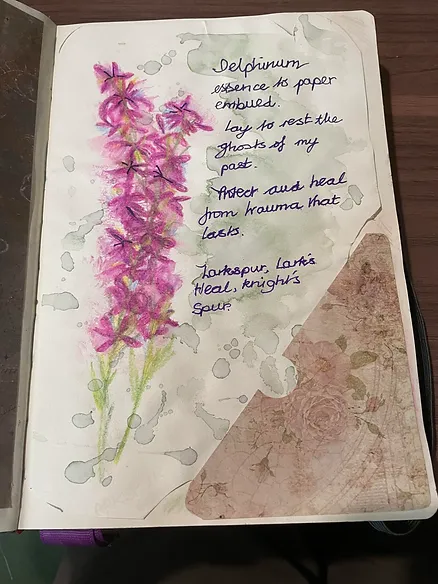 Delphinum
essence to paper
embued.
Lay to rest the
ghosts of my
past.
Protect and heal
from trauma that
lasts.
Larkspur, Lark's
Heal, knight's
Spur.